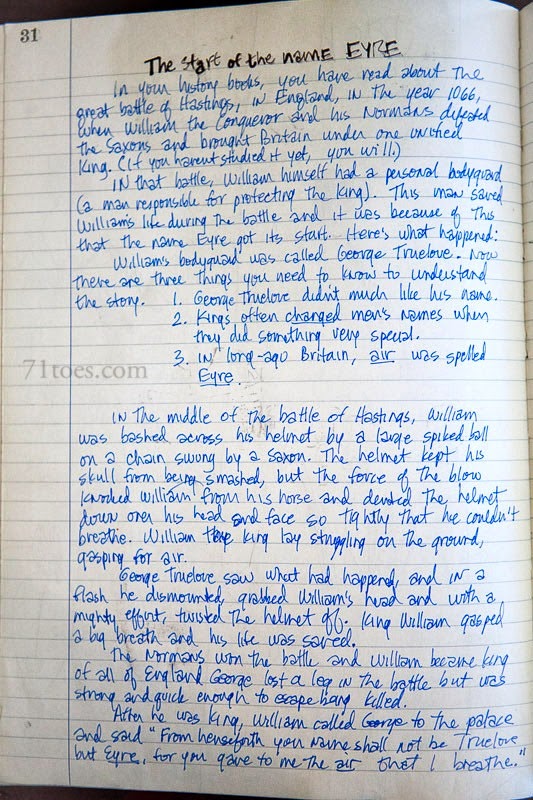 31
The start of the name EYRE
In your history books, you have read about The
great battle of Hastings, in England, in The year 1066,
when William the Conqueror and his Normans defeated
the Saxons and brought Britain under one unified
King. (If you havent studied it yet, you will.)
IN that battle, William himself had a personal bodyguard
(a man responsible for protecting the King). This man saved
William's life during the battle and it was because of This
that the name Eyre got its start. Here's what happened:
William's bodyguard was called George Truelove. Now
there are three things you need to know to understand
the story. 1. George Truelove didn't much like his name.
2. Kings often changed men's names when
they did something very special.
3. IN long-ago Britain, air was spelled
Eyre.
71toes.com
IN The middle of the battle of Hastings, William
was bashed across his helmet by a large spiked ball
on a chain swung by a Saxon. The helmet kept his
skull from being smashed, but the force of the blow
knocked William from his horse and dented the helmet
down over his head and face so tightly that he couldn't
breathe. William the king lay struggling on the ground,
gasping for air.
George Truelove saw what had happened, and in a
flash he dismounted, grabbed William's head and with a
mighty effort, twisted the helmet off. King William gasped
a big breath and his life was saved.
The Normans won the battle and William became king
of all of England George lost a leg in the battle but was
strong and quick enough to escape being killed.
After he was King, William called George to the palace
and said "From henseforth you name shall not be Truelove
but Eyre, for you gave to me the air that I breathe."